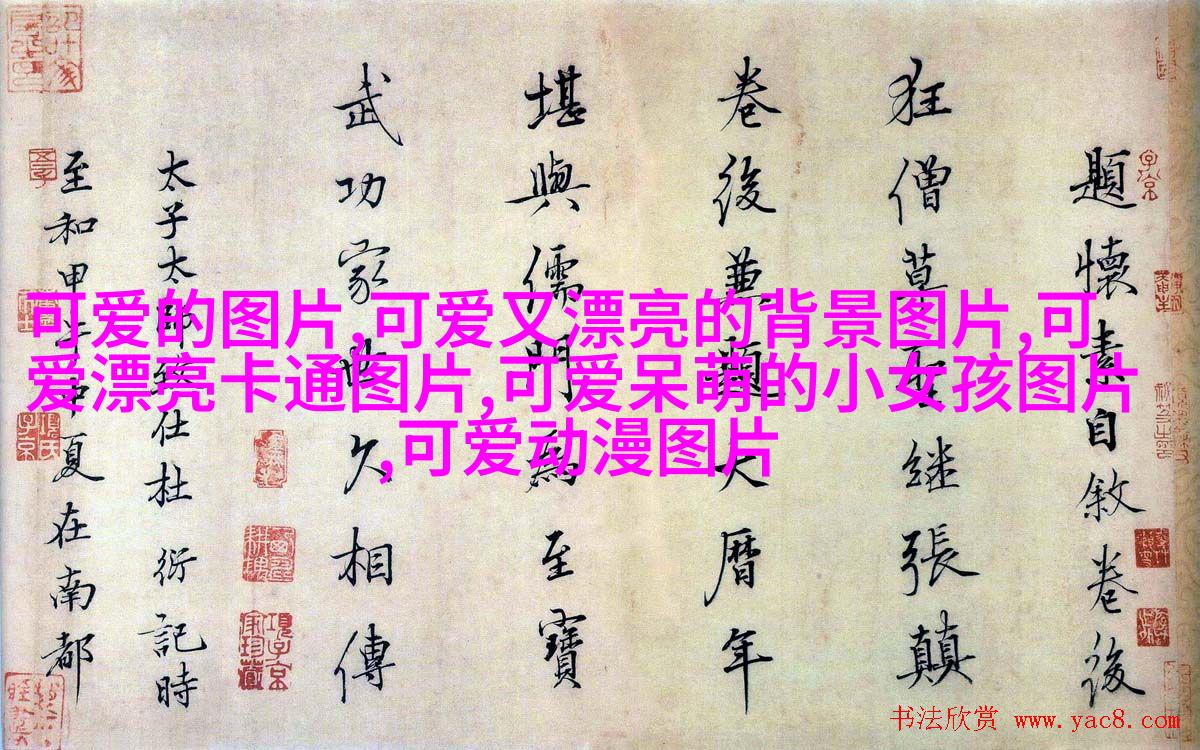 題懷素自敘卷後
狂僧草聖繼張顛
卷後兼題大曆年
堪與儒門為至寶
武功家世久相傳
太子太師致仕杜 衍記時
至和甲午孟夏在南都
可爱的图片,可爱又漂亮的背景图片,可
爱漂亮卡通图片,可爱呆萌的小女孩图片
,可爱动漫图片
书法欣赏 www.yac8.com